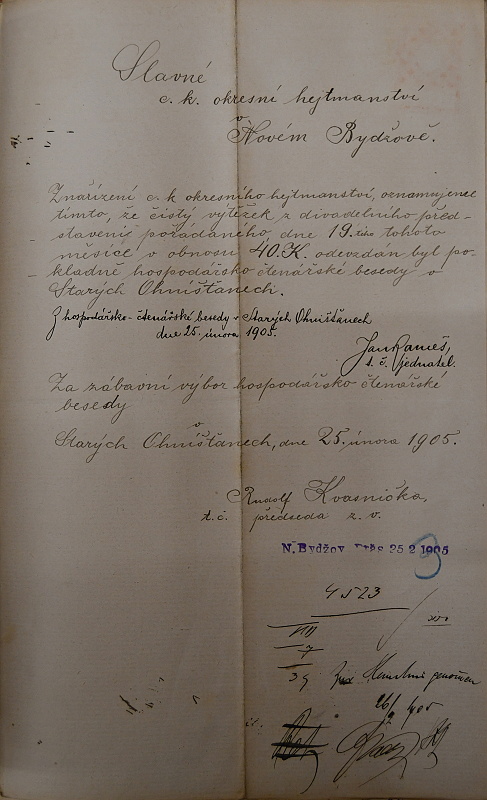 Slavné
c. k. okresní hejtmanství
v
Novém Bydžově.
Znařízení c. k okresního hejtmanství, oznamujeme
tímto, že čistý výtěžek z divadelního před-
stavení pořádaného dne 19. tého tohoto
měsíce v obnosu 40. K. odevzdán byl po-
kladně hospodářsko čtenářské besedy v
Starých Ohništanech.
Z hospodářsko-čtenářské besedy v Starých Ohništanech
dne 25. února 1905.
Jan
t. č. jednatel.
Za zábavní výbor hospodářsko čtenářské
besedy
v
Starých Ohništanech, dne 25. února 1905.
Rudolf Kvasnička,
t. č. předseda z. v.
N. Bydžov 25 2 1905
4523
VII
7
39 genommen
26/2 1905